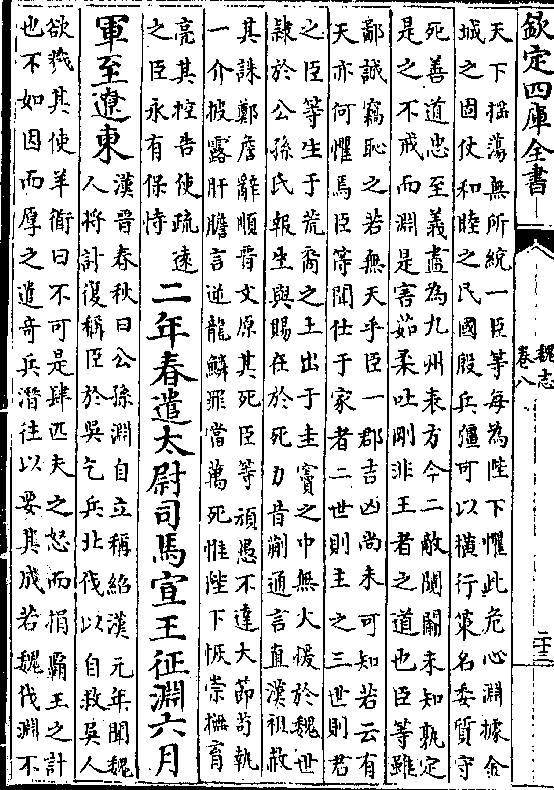 欽定四庫全書
魏志
卷八
二十三
天下搖蕩無所統一臣等每為陛下懼此危心淵據金
城之固仗和睦之民國殷兵彊可以橫行策名委質守
死善道忠至義盡為九州表方今二敵闚闟未知孰定
是之不戒而淵是害茹柔吐剛非王者之道也臣等雖
鄙誠竊恥之若無天乎臣一郡吉凶尚未可知若云有
天亦何懼焉臣等聞仕于家者二世則主之三世則君
之臣等生于荒裔之土出于圭竇之中無大援於魏世
隸於公孫氏報生與賜在於死力昔蒯通言直漢祖赦
其誅鄭詹辭順晉文原其死臣等頑愚不達大節苟執
一介披露肝膽言逆龍鱗罪當萬死惟陛下恢崇撫育
亮其控告使疏遠
之臣永有保恃
二年春遣太尉司馬宣王征淵六月
軍至遼東
漢晉春秋曰公孫淵自立稱紹漢元年聞魏
人將討復稱臣於吳乞兵北伐以自救吳人
欲戮其使羊衜曰不可是肆匹夫之怒而捐霸王之計
也不如因而厚之遣奇兵潛往以要其成若魏伐淵不